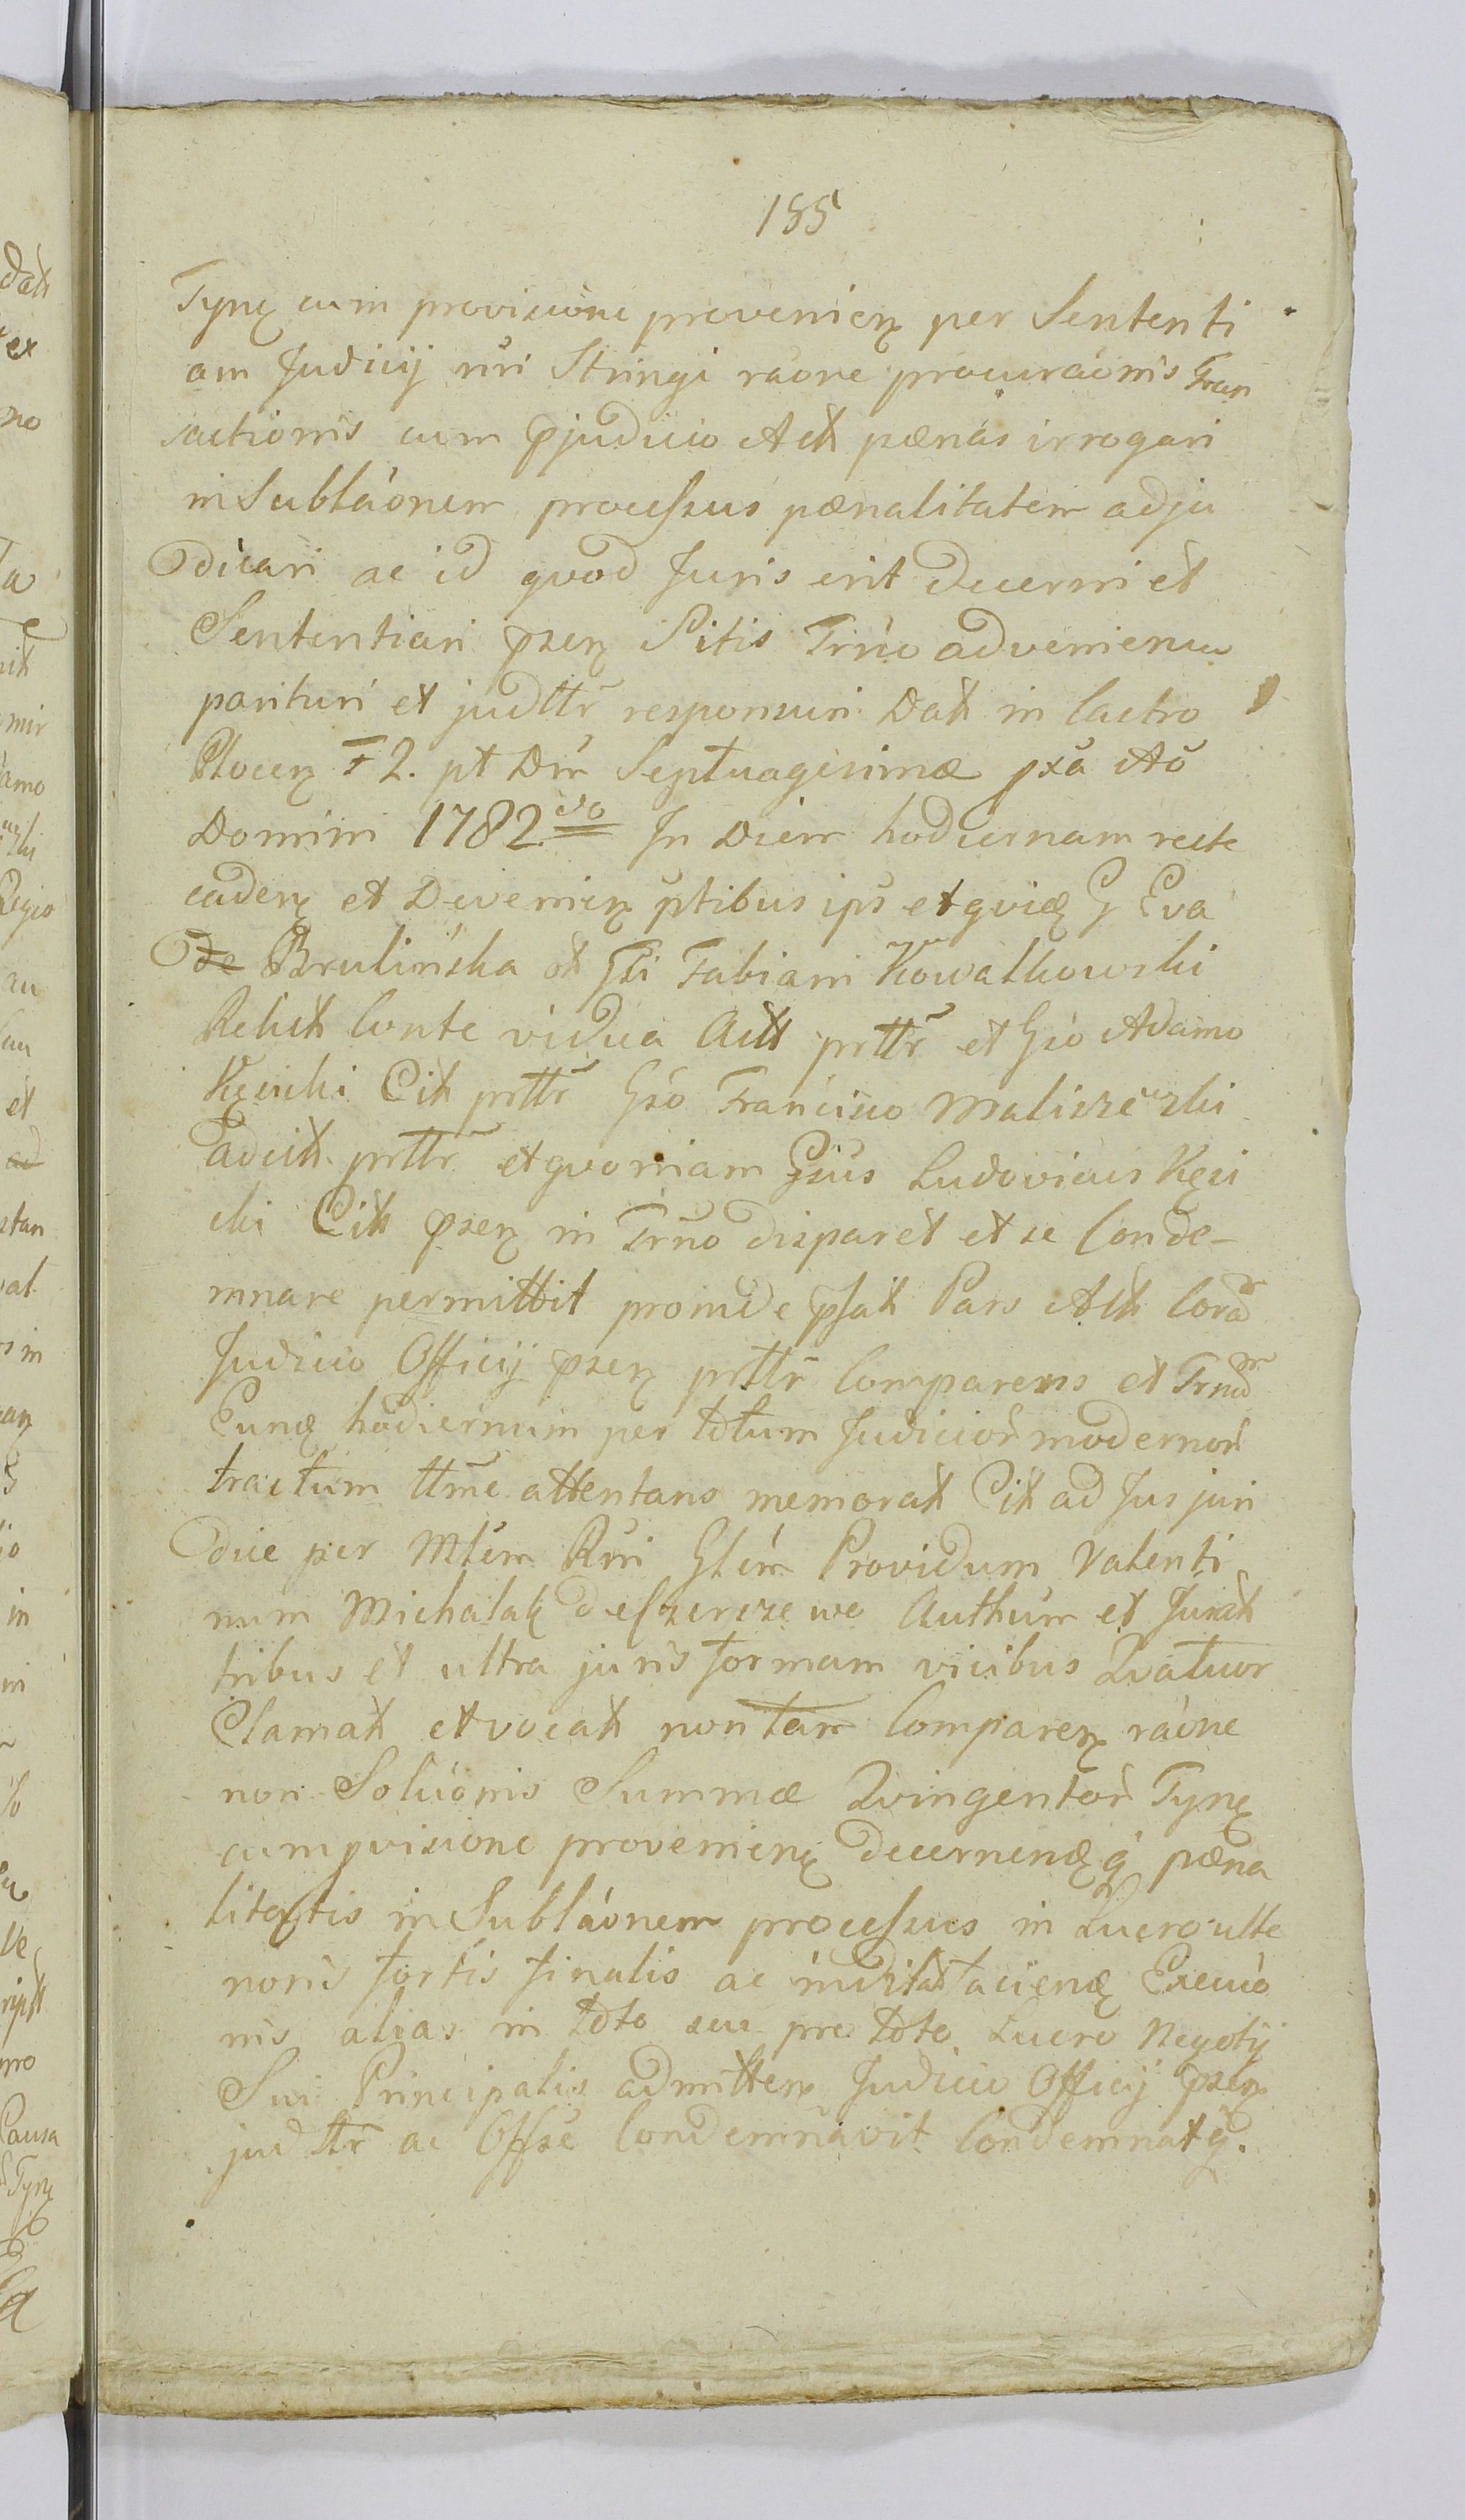 185
Tynę cum provisione provenienę per Sententi
am Judicij nri Stringi raone procuraonis Tran
sactionis cum pjudicio Act pænas irrogari
in Sublaonem processus pænalitatem adju
dicari ac id qvod Juris erit decerni et
Sententiari pzenę Citis Trno advenienu
parituri et judltr responsuri Dat in Castro
Plocen F 2. pt Dm Septuagesimæ pxa Ao
Domini 1782.do In Diem hodiernam recte
cadenę et Devenienę ptibus ips et qvidę G Eva
de Brulińska ot Gti Fabiani Kowalkowski
Relict Conte vidua Actt prttr et Gso Adamo
Kęsicki Cit prttr Gso Francisco Maliszewski
adcit prttr et qvoniam Gsus Ludovicus Kęsi
cki Cit pzenę in Trno disparet et se Conde-
mnare permittit proinde psat Pars Act Cora
Judicio Officij pzenę prttr Comparens et Trnu
Eunę hodiernum per totum Judicior modernor
tractum ttme attentans memorat Cit ad Jus juri
dice per Mlem Rni Glem Providum Valenti
num Michalak de Szerszewo Authum et Jurat
tribus et ultra juris formam vicibus Qvatuor
Clamat et vocat non tam Comparenę raone
non Soluonis Summæ Qvingentor Tynę
cum pvisione provenienę decernendę q pæna
litatis in Sublaonem processus in Lucro ulte
rioris fortis finalis ac indilat faciendę Execuo
nis alias in toto seu pro toto Lucro Negotij
Sui Principalis admittenę Judicio Officij pzenę
judltr ac Offse Condemnavit Condemnatq.